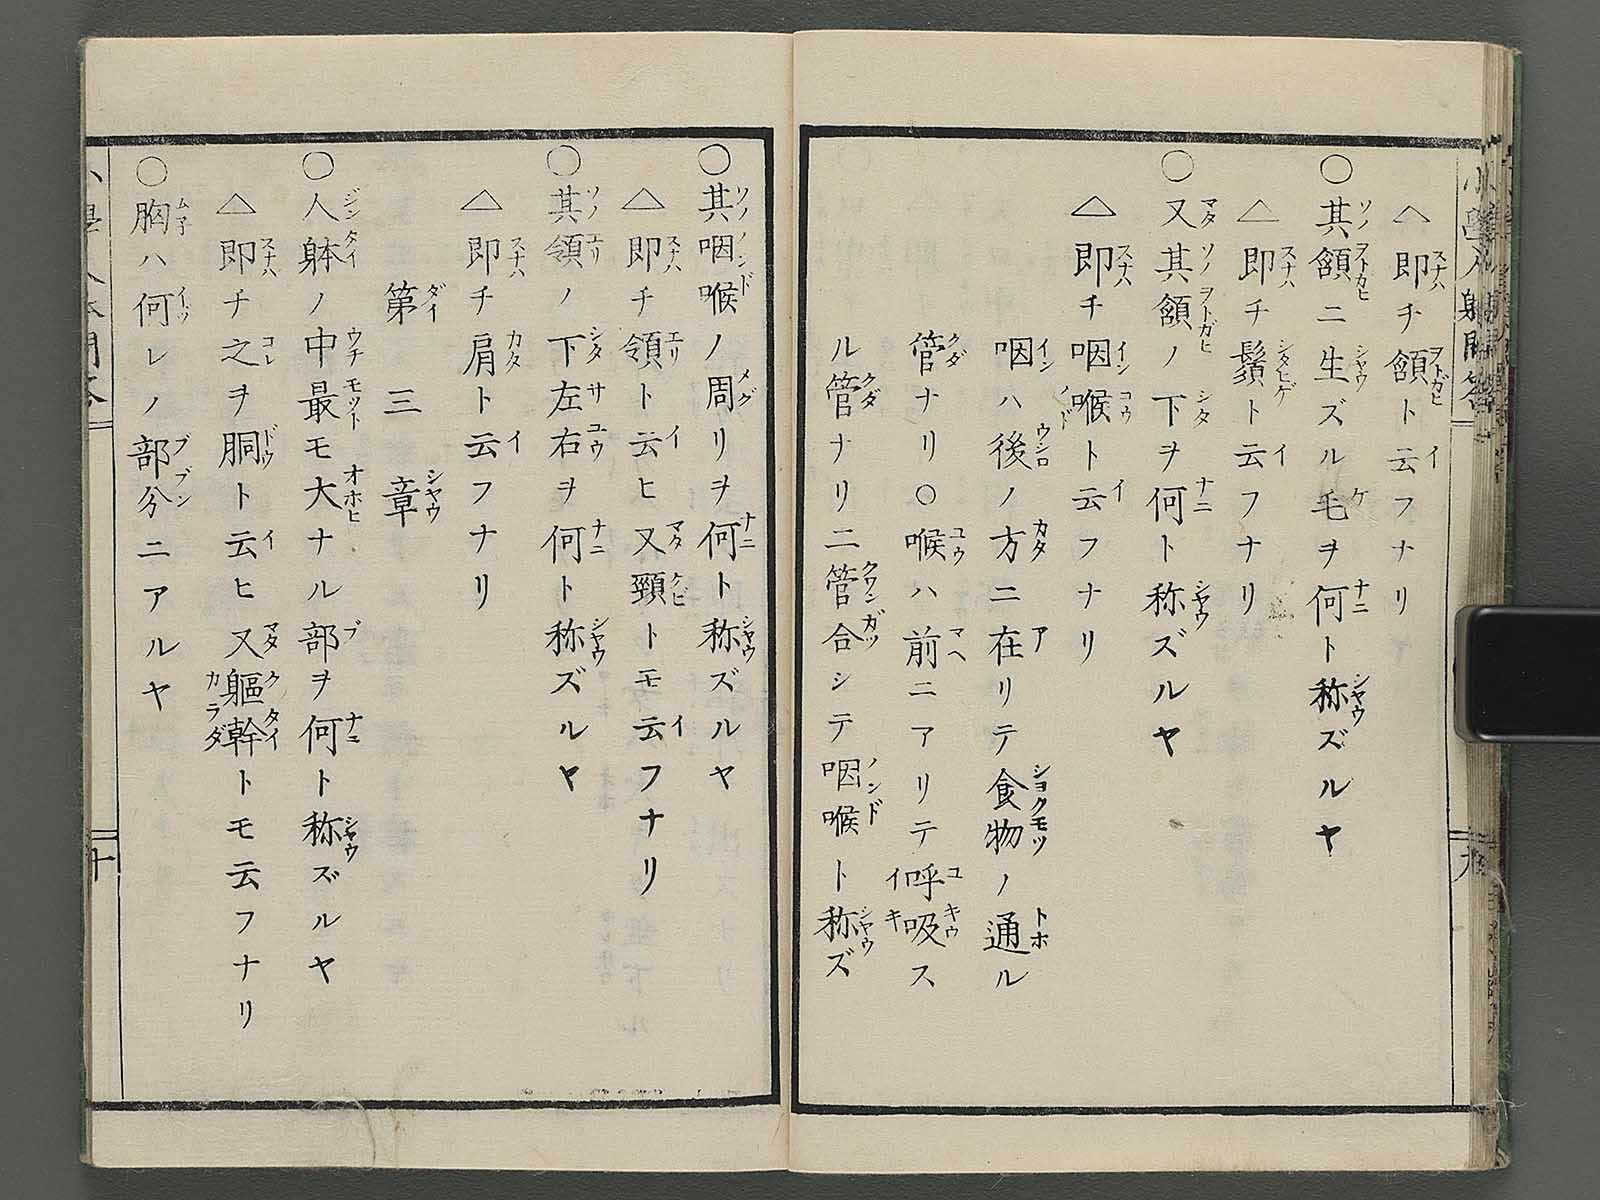 △即チ頷ト云フナリ
○其頷ニ生ズル毛ヲ何ト称ズルヤ
△即チ鬚ト云フナリ
○又其頷ノ下ヲ何ト称ズルヤ
△即チ咽喉ト云フナリ
咽ハ後ノ方ニ在リテ食物ノ通ル
管ナリ○喉ハ前ニアリテ呼吸ス
ル管ナリ二管合シテ咽喉ト称ズ
九
○其咽喉ノ周リヲ何ト称ズルヤ
△即チ領ト云ヒ又頸トモ云フナリ
○其領ノ下左右ヲ何ト称ズルヤ
△即チ肩ト云フナリ
第三章
○人躰ノ中最モ大ナル部ヲ何ト称ズルヤ
△即チ之ヲ胴ト云ヒ又軀幹トモ云フナリ
○胸ハ何レノ部分ニアルヤ
十